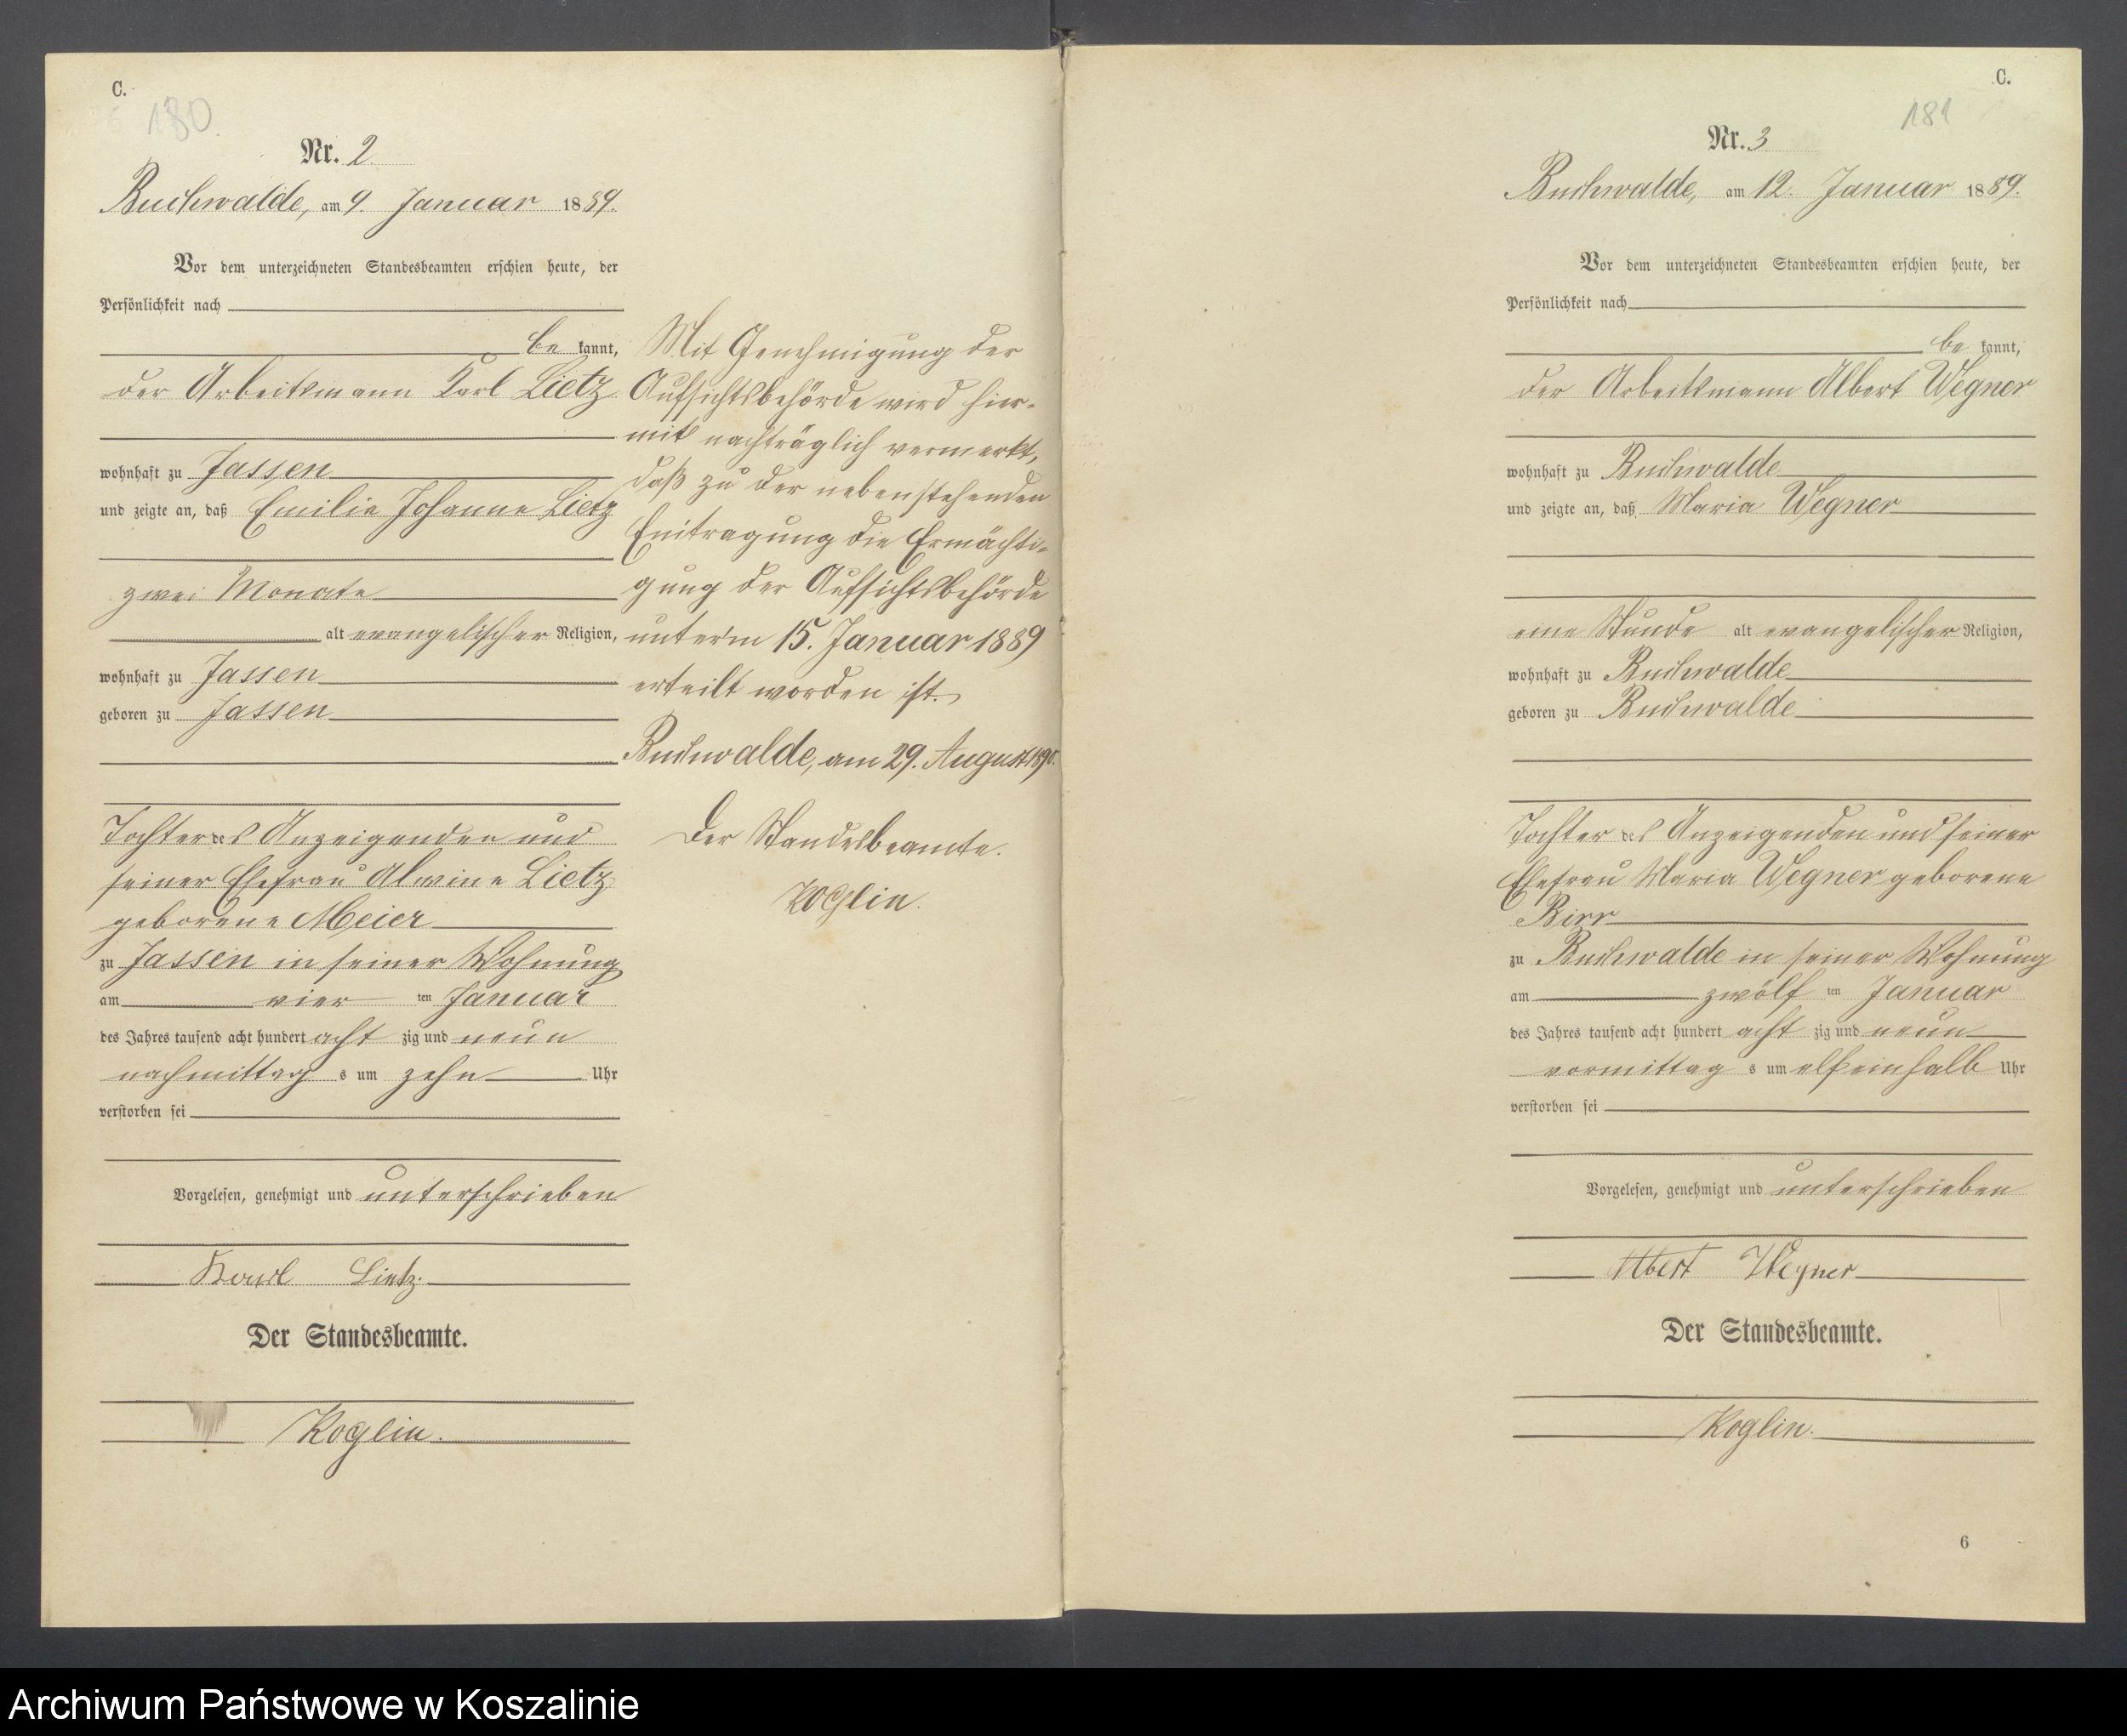 C.
180.
Nr. 2
Buchwalde, am 9. Januar 1889.
Vor dem unterzeichneten Standesbeamten erschien heute, der
Persönlichkeit nach
be kannt,
der Arbeitsmann Karl Lietz
wohnhaft zu Jassen
und zeigte an, daß Emilie Johanne Lietz
zwei Monate
alt evangelischer Religion,
wohnhaft zu Jassen
geboren zu Jassen
Tochter des Anzeigenden und
seiner Ehefrau Alwine Lietz
geborene Meier
zu Jassen in seiner Wohnung
am vier ten Januar
des Jahres tausend acht hundert acht zig und neun
nachmittag s um zehn Uhr
verstorben sei
Vorgelesen, genehmigt und unterschrieben
Karl Lietz.
Der Standesbeamte.
Koglin.
Mit Genehmigung der
Aufsichtsbehörde wird hier-
mit nachträglich vermerkt,
daß zu der nebenstehenden
Eintragung die Ermächti-
gung der Aufsichtsbehörde
unterm 15. Januar 1889
erteilt worden ist.
Buchwalde, am 29. August
Der Standesbeamte.
Koglin.
C.
181
Nr. 3
Buchwalde, am 12. Januar 1889.
Vor dem unterzeichneten Standesbeamten erschien heute, der
Persönlichkeit nach
be kannt,
der Arbeitsmann Albert Wegner
wohnhaft zu Buchwalde
und zeigte an, daß Maria Wegner
eine Stunde alt evangelischer Religion,
wohnhaft zu Buchwalde
geboren zu Buchwalde
Tochter des Anzeigenden und seiner
Ehefrau Maria Wegner geborene
Birr
zu Buchwalde in seiner Wohnung
am zwölf ten Januar
des Jahres tausend acht hundert acht zig und neun
vormittag s um elfeinhalb Uhr
verstorben sei
Vorgelesen, genehmigt und unterschrieben
Albert Wegner
Der Standesbeamte.
Koglin.
6
Archiwum Państwowe w Koszalinie